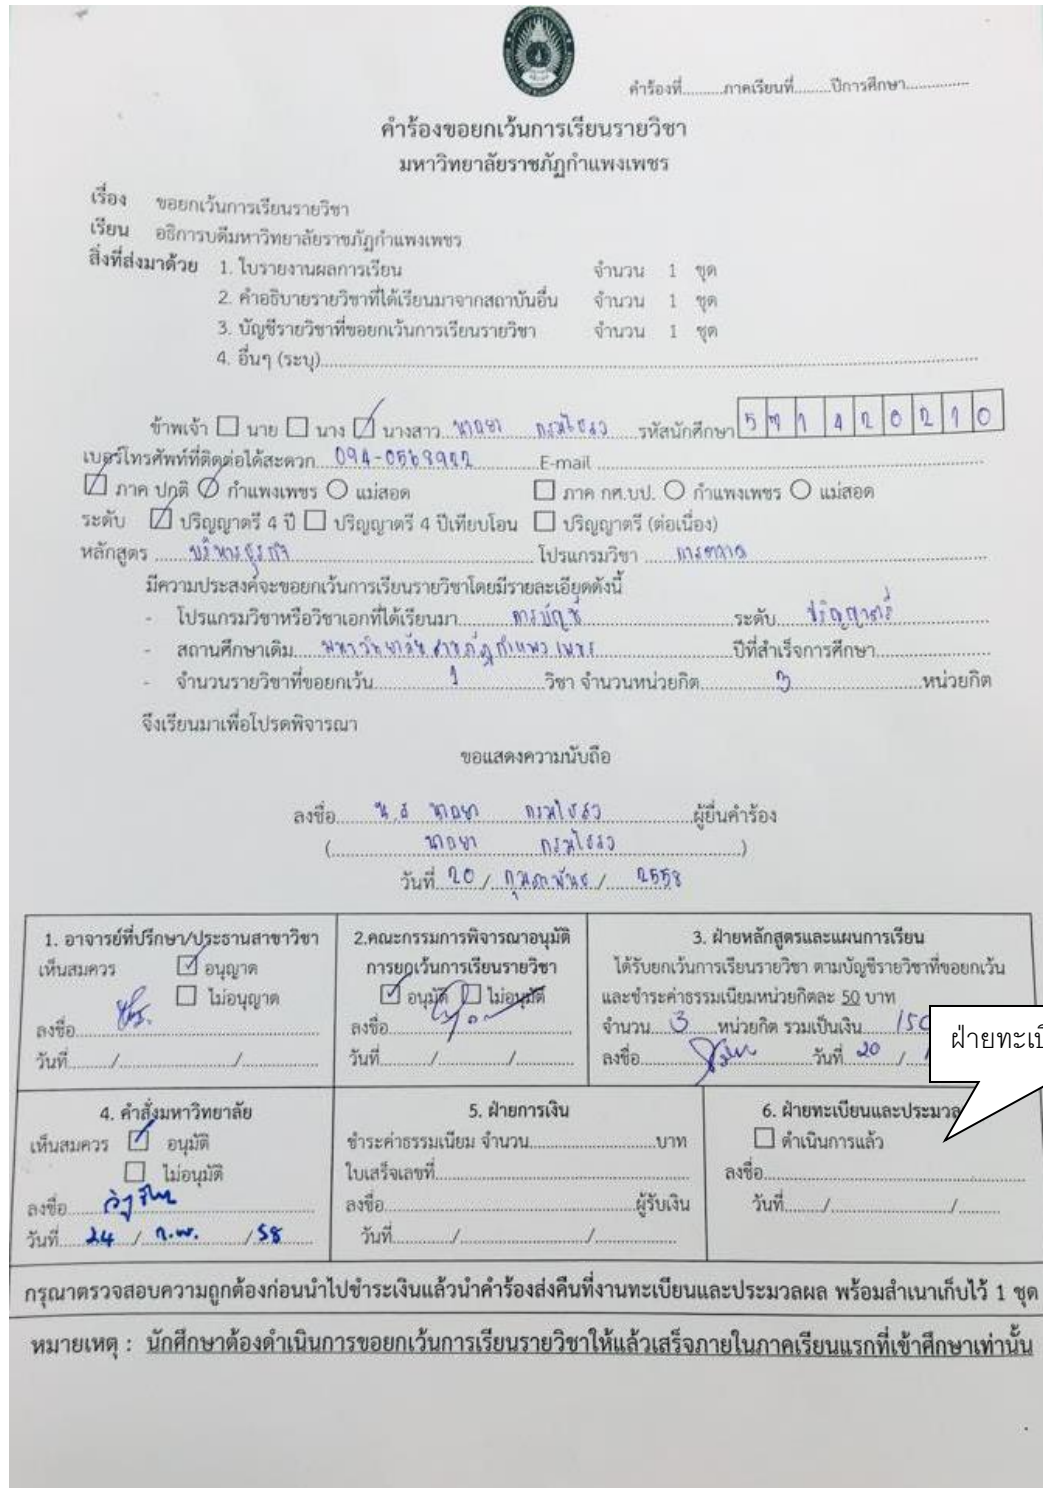 คำร้องที่..........ภาคเรียนที่.........ปีการศึกษา...............
คำร้องขอยกเว้นการเรียนรายวิชา
มหาวิทยาลัยราชภัฏกำแพงเพชร
เรื่อง ขอยกเว้นการเรียนรายวิชา
เรียน อธิการบดีมหาวิทยาลัยราชภัฏกำแพงเพชร
สิ่งที่ส่งมาด้วย 1. ใบรายงานผลการเรียน จำนวน 1 ชุด
2. คำอธิบายรายวิชาที่ได้เรียนมาจากสถาบันอื่น จำนวน 1 ชุด
3. บัญชีรายวิชาที่ขอยกเว้นการเรียนรายวิชา จำนวน 1 ชุด
4. อื่นๆ (ระบุ)...............
ข้าพเจ้า ☐ นาย ☐ นาง ☑ นางสาว รหัสนักศึกษา 5 7 1 4 2 0 2 1 0
เบอร์โทรศัพท์ที่ติดต่อได้สะดวก 094-0568982 E-mail ...............
☑ ภาค ปกติ ☑ กำแพงเพชร ○ แม่สอด ☐ ภาค กศ.บป. ○ กำแพงเพชร ○ แม่สอด
ระดับ ☑ ปริญญาตรี 4 ปี ☐ ปริญญาตรี 4 ปีเทียบโอน ☐ ปริญญาตรี (ต่อเนื่อง)
หลักสูตร บริหารธุรกิจ โปรแกรมวิชา การตลาด
มีความประสงค์จะขอยกเว้นการเรียนรายวิชาโดยมีรายละเอียดดังนี้
- โปรแกรมวิชาหรือวิชาเอกที่ได้เรียนมา การบัญชี ระดับ ปริญญาตรี
- สถานศึกษาเดิม มหาวิทยาลัยราชภัฏกำแพงเพชร ปีที่สำเร็จการศึกษา...............
- จำนวนรายวิชาที่ขอยกเว้น 1 วิชา จำนวนหน่วยกิต 3 หน่วยกิต
จึงเรียนมาเพื่อโปรดพิจารณา
ขอแสดงความนับถือ
ลงชื่อ น.ส ผู้ยื่นคำร้อง
วันที่ 20 / กุมภาพันธ์ / 2558
1. อาจารย์ที่ปรึกษา/ประธานสาขาวิชา
เห็นสมควร ☑ อนุญาต
☐ ไม่อนุญาต
ลงชื่อ
วันที่........./............../.........
2.คณะกรรมการพิจารณาอนุมัติ
การยกเว้นการเรียนรายวิชา
☑ อนุมัติ ☐ ไม่อนุมัติ
ลงชื่อ
วันที่........./............../.........
3. ฝ่ายหลักสูตรและแผนการเรียน
ได้รับยกเว้นการเรียนรายวิชา ตามบัญชีรายวิชาที่ขอยกเว้น
และชำระค่าธรรมเนียมหน่วยกิตละ 50 บาท
จำนวน 3 หน่วยกิต รวมเป็นเงิน 150
ลงชื่อ วันที่ 20 /
ฝ่ายทะเบี
4. คำสั่งมหาวิทยาลัย
เห็นสมควร ☑ อนุมัติ
☐ ไม่อนุมัติ
ลงชื่อ
วันที่ 24 / ก.พ. / 58
5. ฝ่ายการเงิน
ชำระค่าธรรมเนียม จำนวน...............บาท
ใบเสร็จเลขที่...............
ลงชื่อ...............ผู้รับเงิน
วันที่............/............../............
6. ฝ่ายทะเบียนและประมวล
☐ ดำเนินการแล้ว
ลงชื่อ...............
วันที่........./............../.........
กรุณาตรวจสอบความถูกต้องก่อนนำไปชำระเงินแล้วนำคำร้องส่งคืนที่งานทะเบียนและประมวลผล พร้อมสำเนาเก็บไว้ 1 ชุด
หมายเหตุ : นักศึกษาต้องดำเนินการขอยกเว้นการเรียนรายวิชาให้แล้วเสร็จภายในภาคเรียนแรกที่เข้าศึกษาเท่านั้น